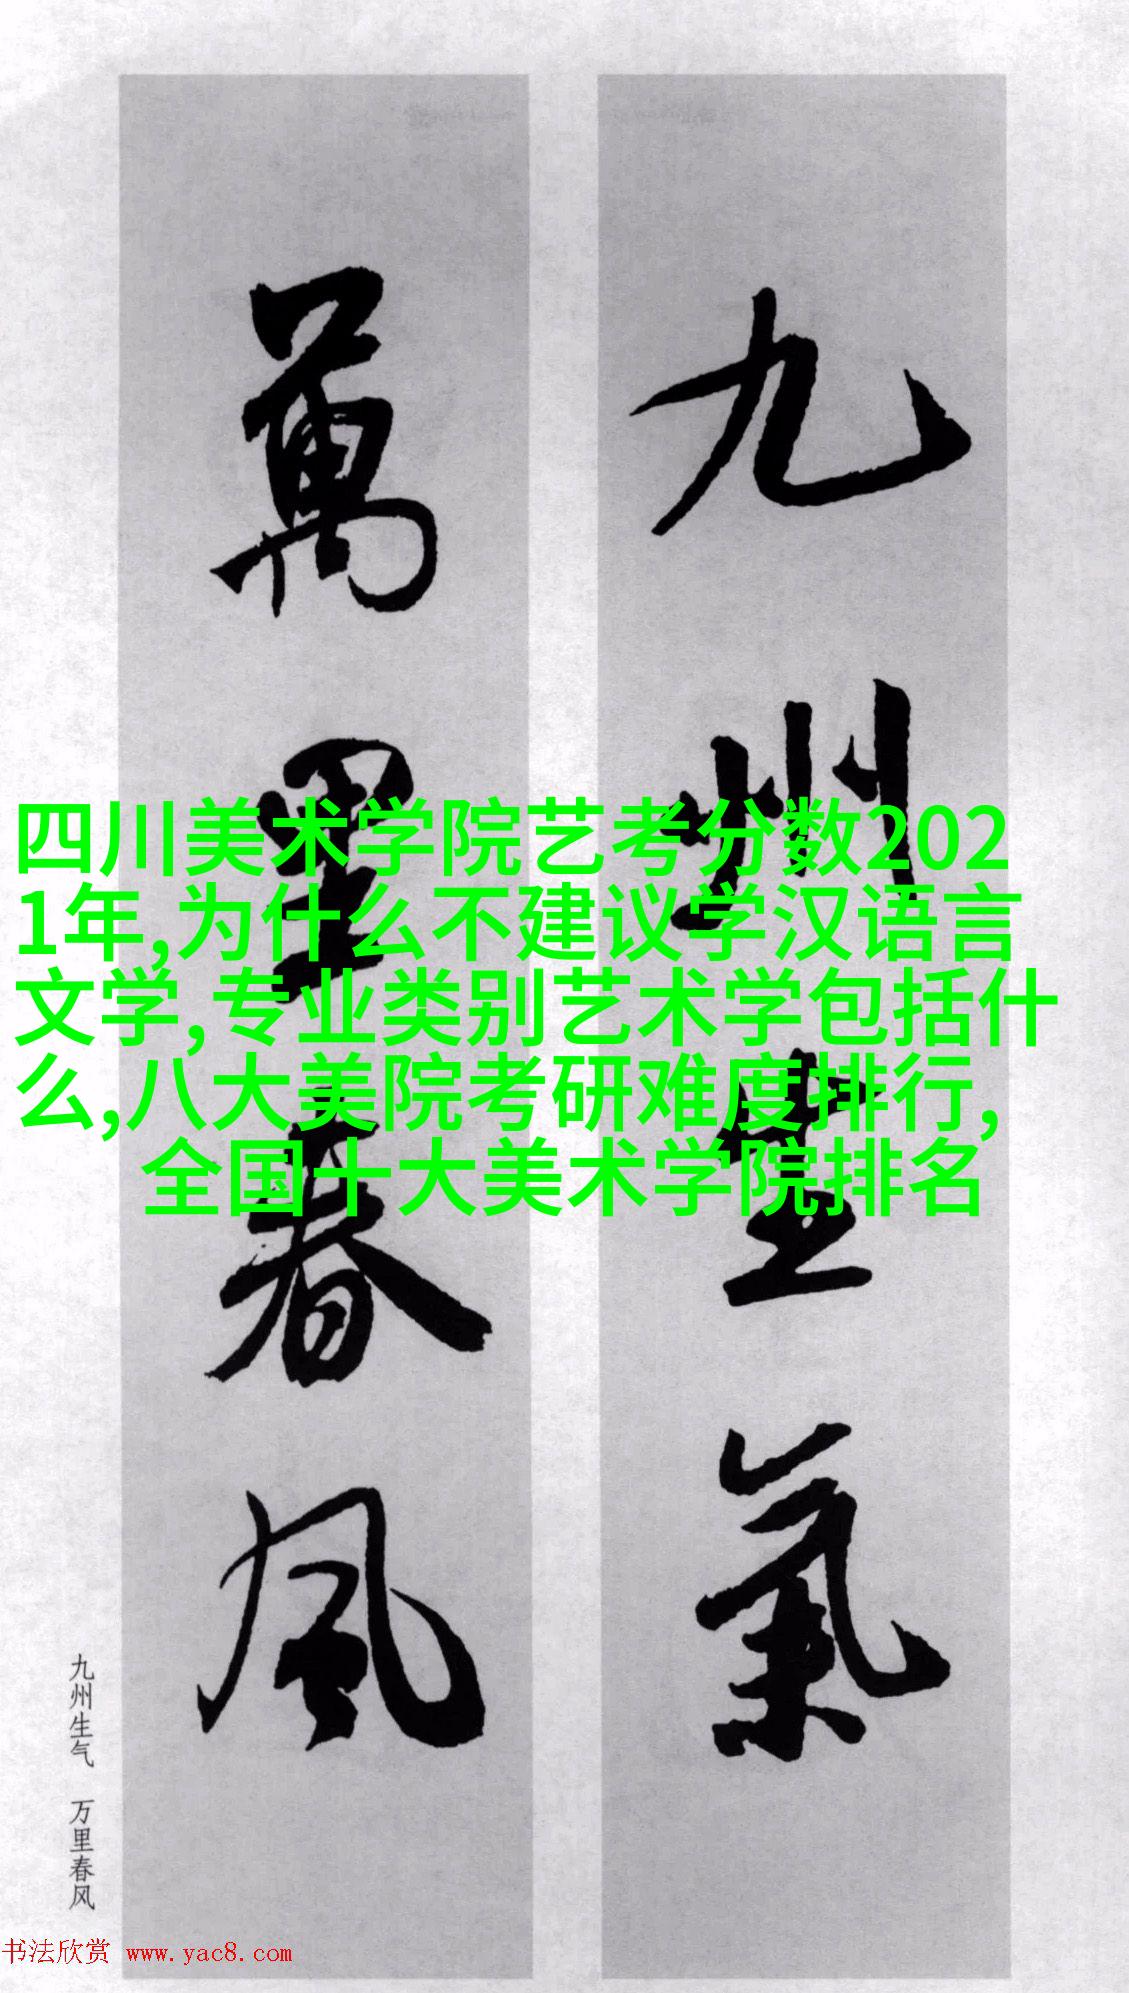 九州生氣
萬里春風
四川美术学院艺考分数202
1年,为什么不建议学汉语言
文学,专业类别艺术学包括什
么,八大美院考研难度排行,
全国十大美术学院排名
九州生气 万里春风
书法欣赏 www.yac8.com